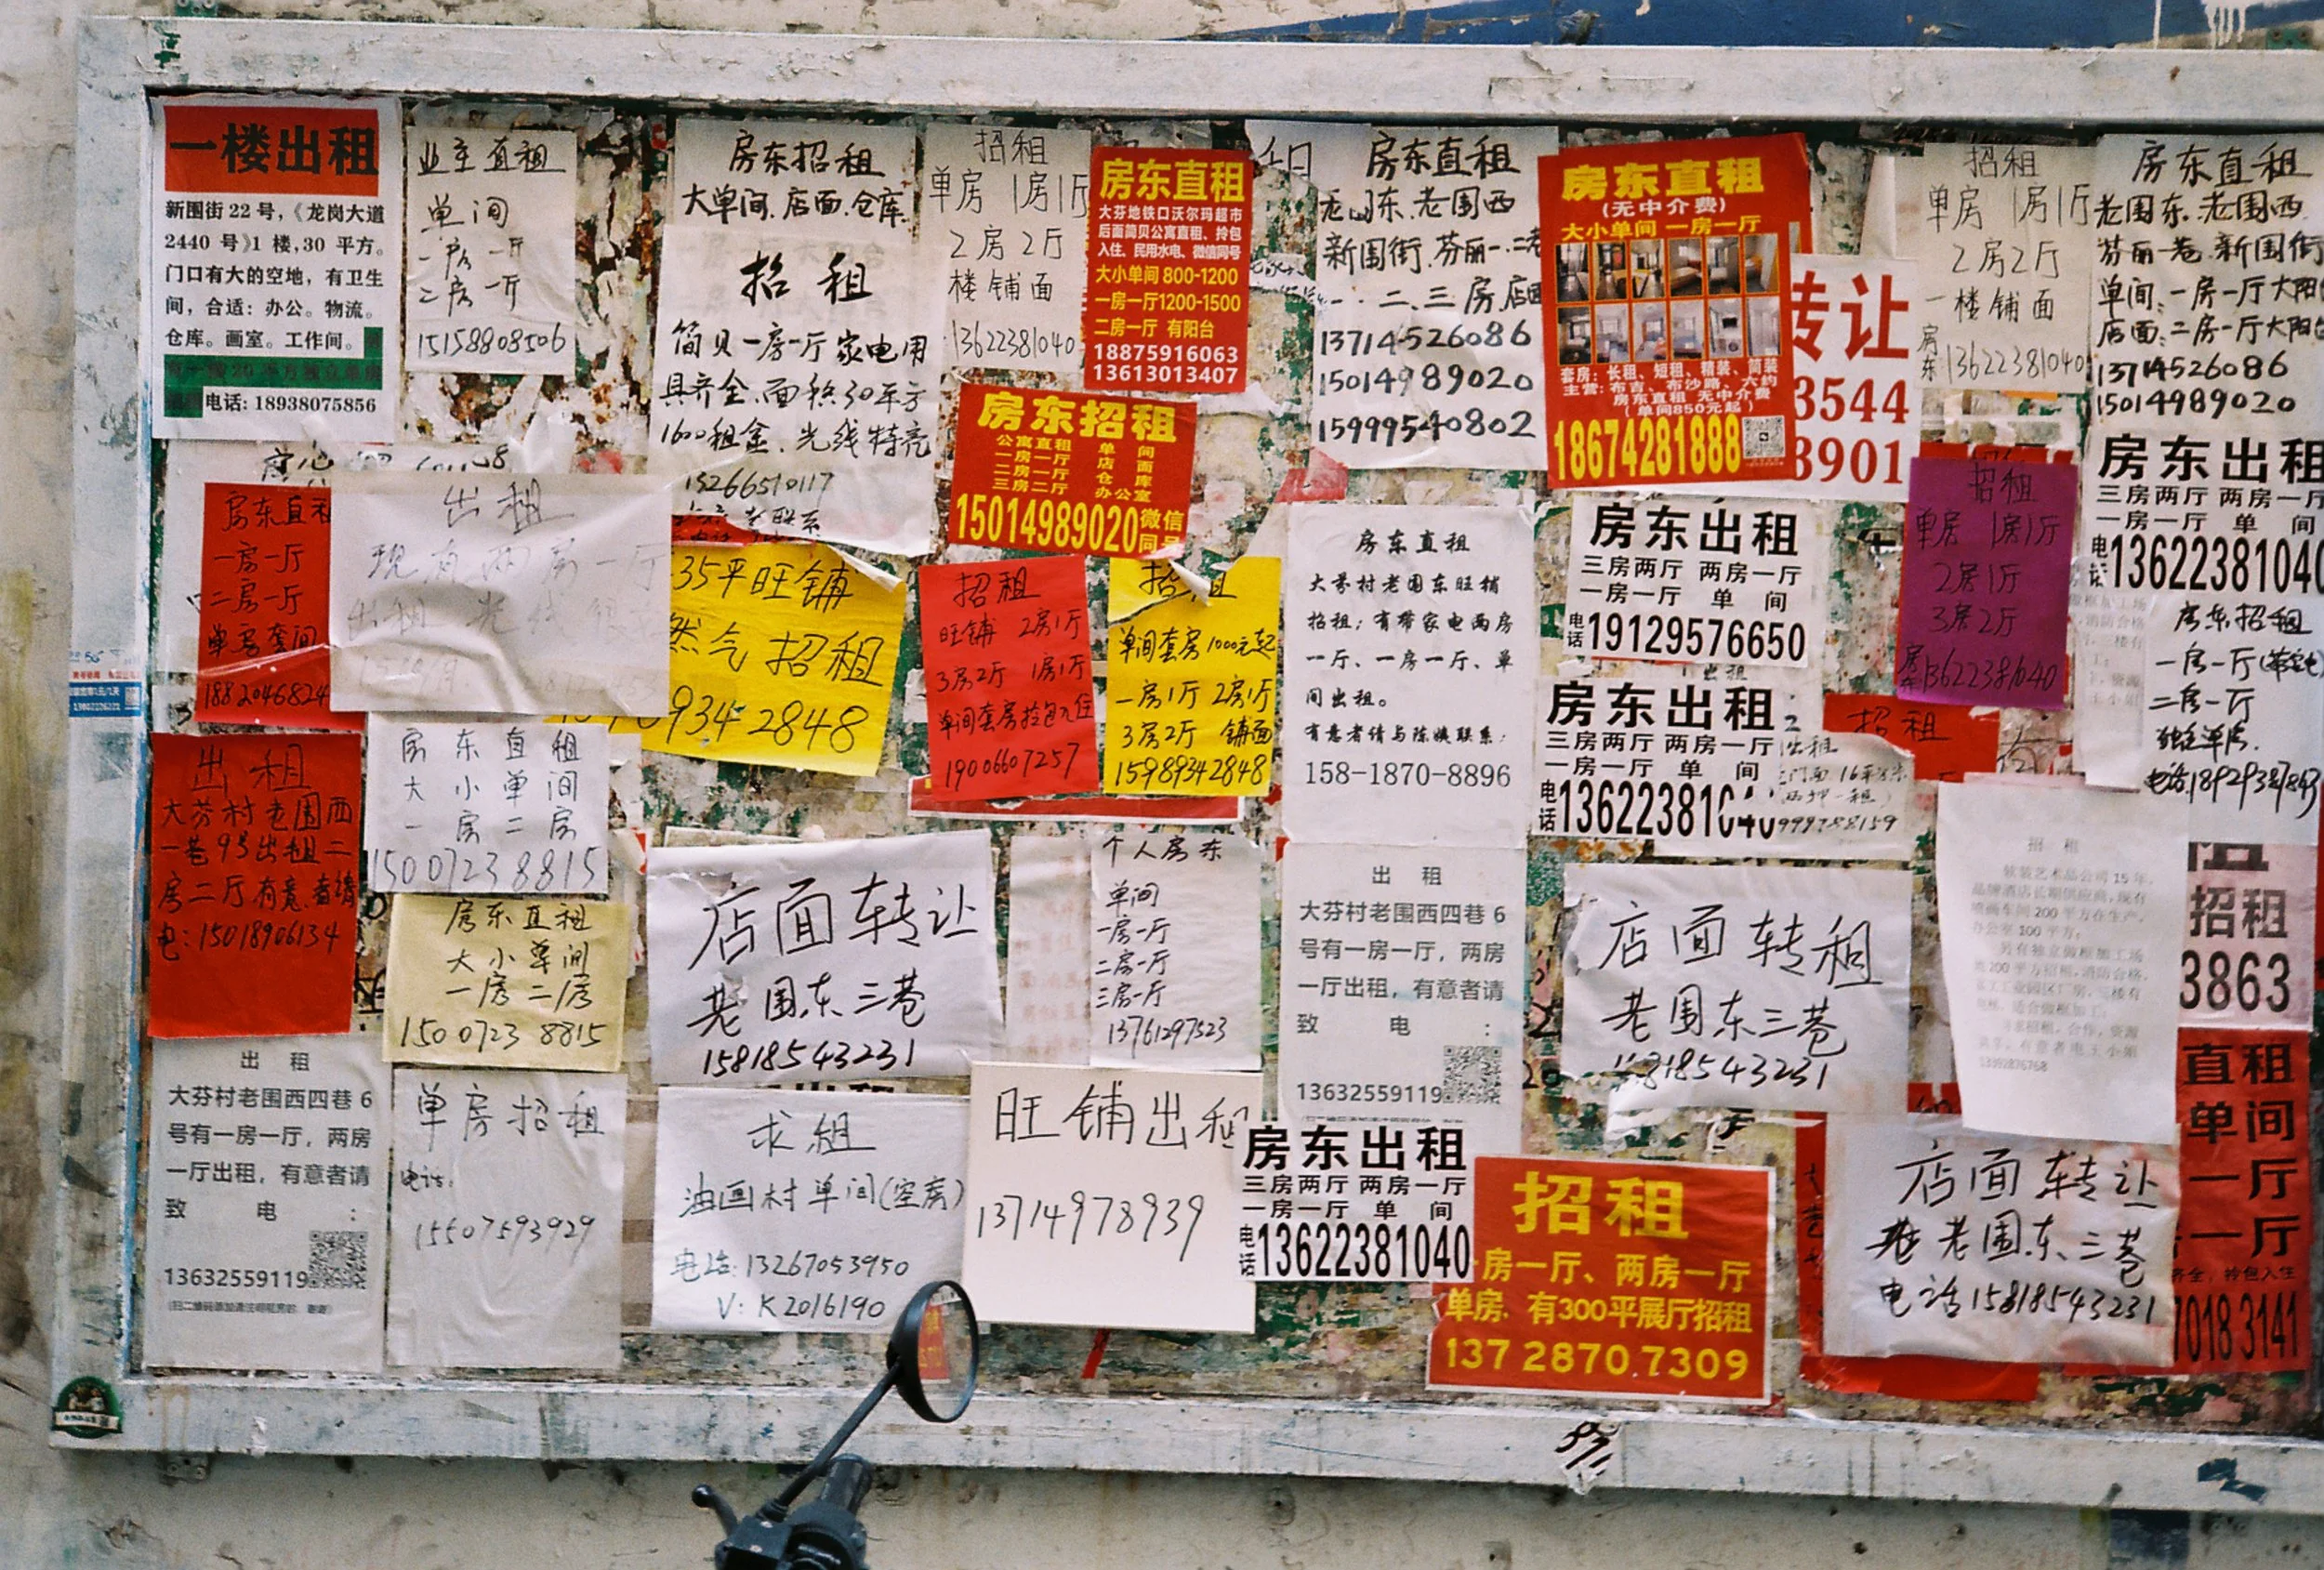 一楼出租
新围街 22 号,《龙岗大道
2440 号》1 楼,30 平方。
门口有大的空地，有卫生
间，合适：办公。物流。
仓库。画室。工作间。
电话: 18938075856
业主直租
单间
一房一厅
二房一厅
15158808506
房东招租
大单间.店面.仓库.
招 租
简贝一房一厅家电用
具齐全.面积30平方
1600租金.光线特亮
15266510117
招租
单房 1房1厅
2房2厅
楼铺面
13622381040
房东直租
大芬地铁口沃尔玛超市
后面简贝公寓直租、拎包
入住、民用水电、微信同号
大小单间 800-1200
一房一厅1200-1500
二房一厅 有阳台
18875916063
13613013407
房东招租
公寓直租 单间
一房一厅 店面
二房一厅 仓库
三房二厅 办公室
15014989020微信
同号
房东直租
老围东.老围西
新围街.芬丽一.二巷
一.二.三房.店面
13714526086
15014989020
15999540802
房东直租
(无中介费)
大小单间 一房一厅
套房：长租、短租、精装、简装
主营：布吉、布沙路、六约
房东直租 无中介费
(单间850元起)
18674281888
转让
3544
3901
招租
单房 1房1厅
2房2厅
一楼铺面
房东13622381040
房东直租
老围东.老围西
芬丽一巷.新围街
单间:一房一厅大阳
店面:二房一厅大阳台
13714526086
15014989020
房东出租
三房两厅 两房一厅
一房一厅 单 间
电话13622381040
房东直租
一房一厅
二房一厅
单房套间
1882046824
出租
现有两房一厅
出租
35平旺铺
然气招租
9342848
招租
旺铺 2房1厅
3房2厅 1房1厅
单间套房拎包入住
19006607257
招租
单间套房1000元起
一房1厅 2房1厅
3房2厅 铺面
15989342848
房东直租
大芬村老围东旺铺
招租；有带家电两房
一厅、一房一厅、单
间出租。
有意者请与陈姨联系：
158-1870-8896
房东出租
三房两厅 两房一厅
一房一厅 单 间
电话19129576650
出租
房东出租
三房两厅 两房一厅
一房一厅 单 间
电话13622381040
出租
招租
单房 1房1厅
2房1厅
3房2厅
房东13622381040
招租
房东招租
一房一厅
二房一厅
独立单房.
出租
大芬村老围西
一巷9号出租二
房二厅有意者请
电:15018906134
房东直租
大小单间
一房二房
15007238815
房东直租
大小单间
一房二房
15007238815
店面转让
老围东三巷
15818543231
个人房东
单间
一房一厅
二房一厅
三房一厅
13761297523
出 租
大芬村老围西四巷 6
号有一房一厅，两房
一厅出租，有意者请
致 电 ：
13632559119
店面转租
老围东三巷
15818543231
招 租
软装艺术品公司 15 年,
招租
3863
出 租
大芬村老围西四巷 6
号有一房一厅，两房
一厅出租，有意者请
致 电 ：
13632559119
单房招租
电话:
15507593929
求租
油画村单间(空房)
电话:13267053950
V: K2016190
旺铺出租
13714978939
房东出租
三房两厅 两房一厅
一房一厅 单 间
电话13622381040
招租
一房一厅、两房一厅
单房、有300平展厅招租
137 2870 7309
店面转让
老围东三巷
电话15818543231
直租
单间
一厅
一厅
齐全，拎包入住
7018 3141